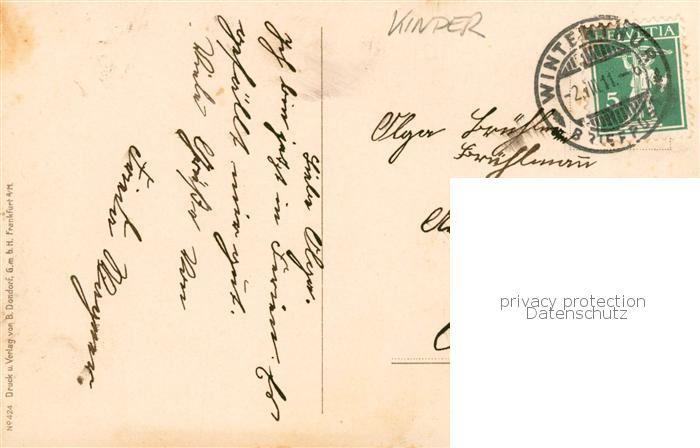 KINDER
WINTERTHUR
-2.VIII.11.-8
BRIEFTR.
HELVETIA
5
Olga Brühlm
Brühlmann
privacy protection
Datenschutz
Liebe Olga.
Ich bin jetzt in Ferien. Es
gefällt mir gut.
Viele Grüsse von
Frieda
No 424 Druck u. Verlag von B. Dondorf, G.m.b.H. Frankfurt a/M.